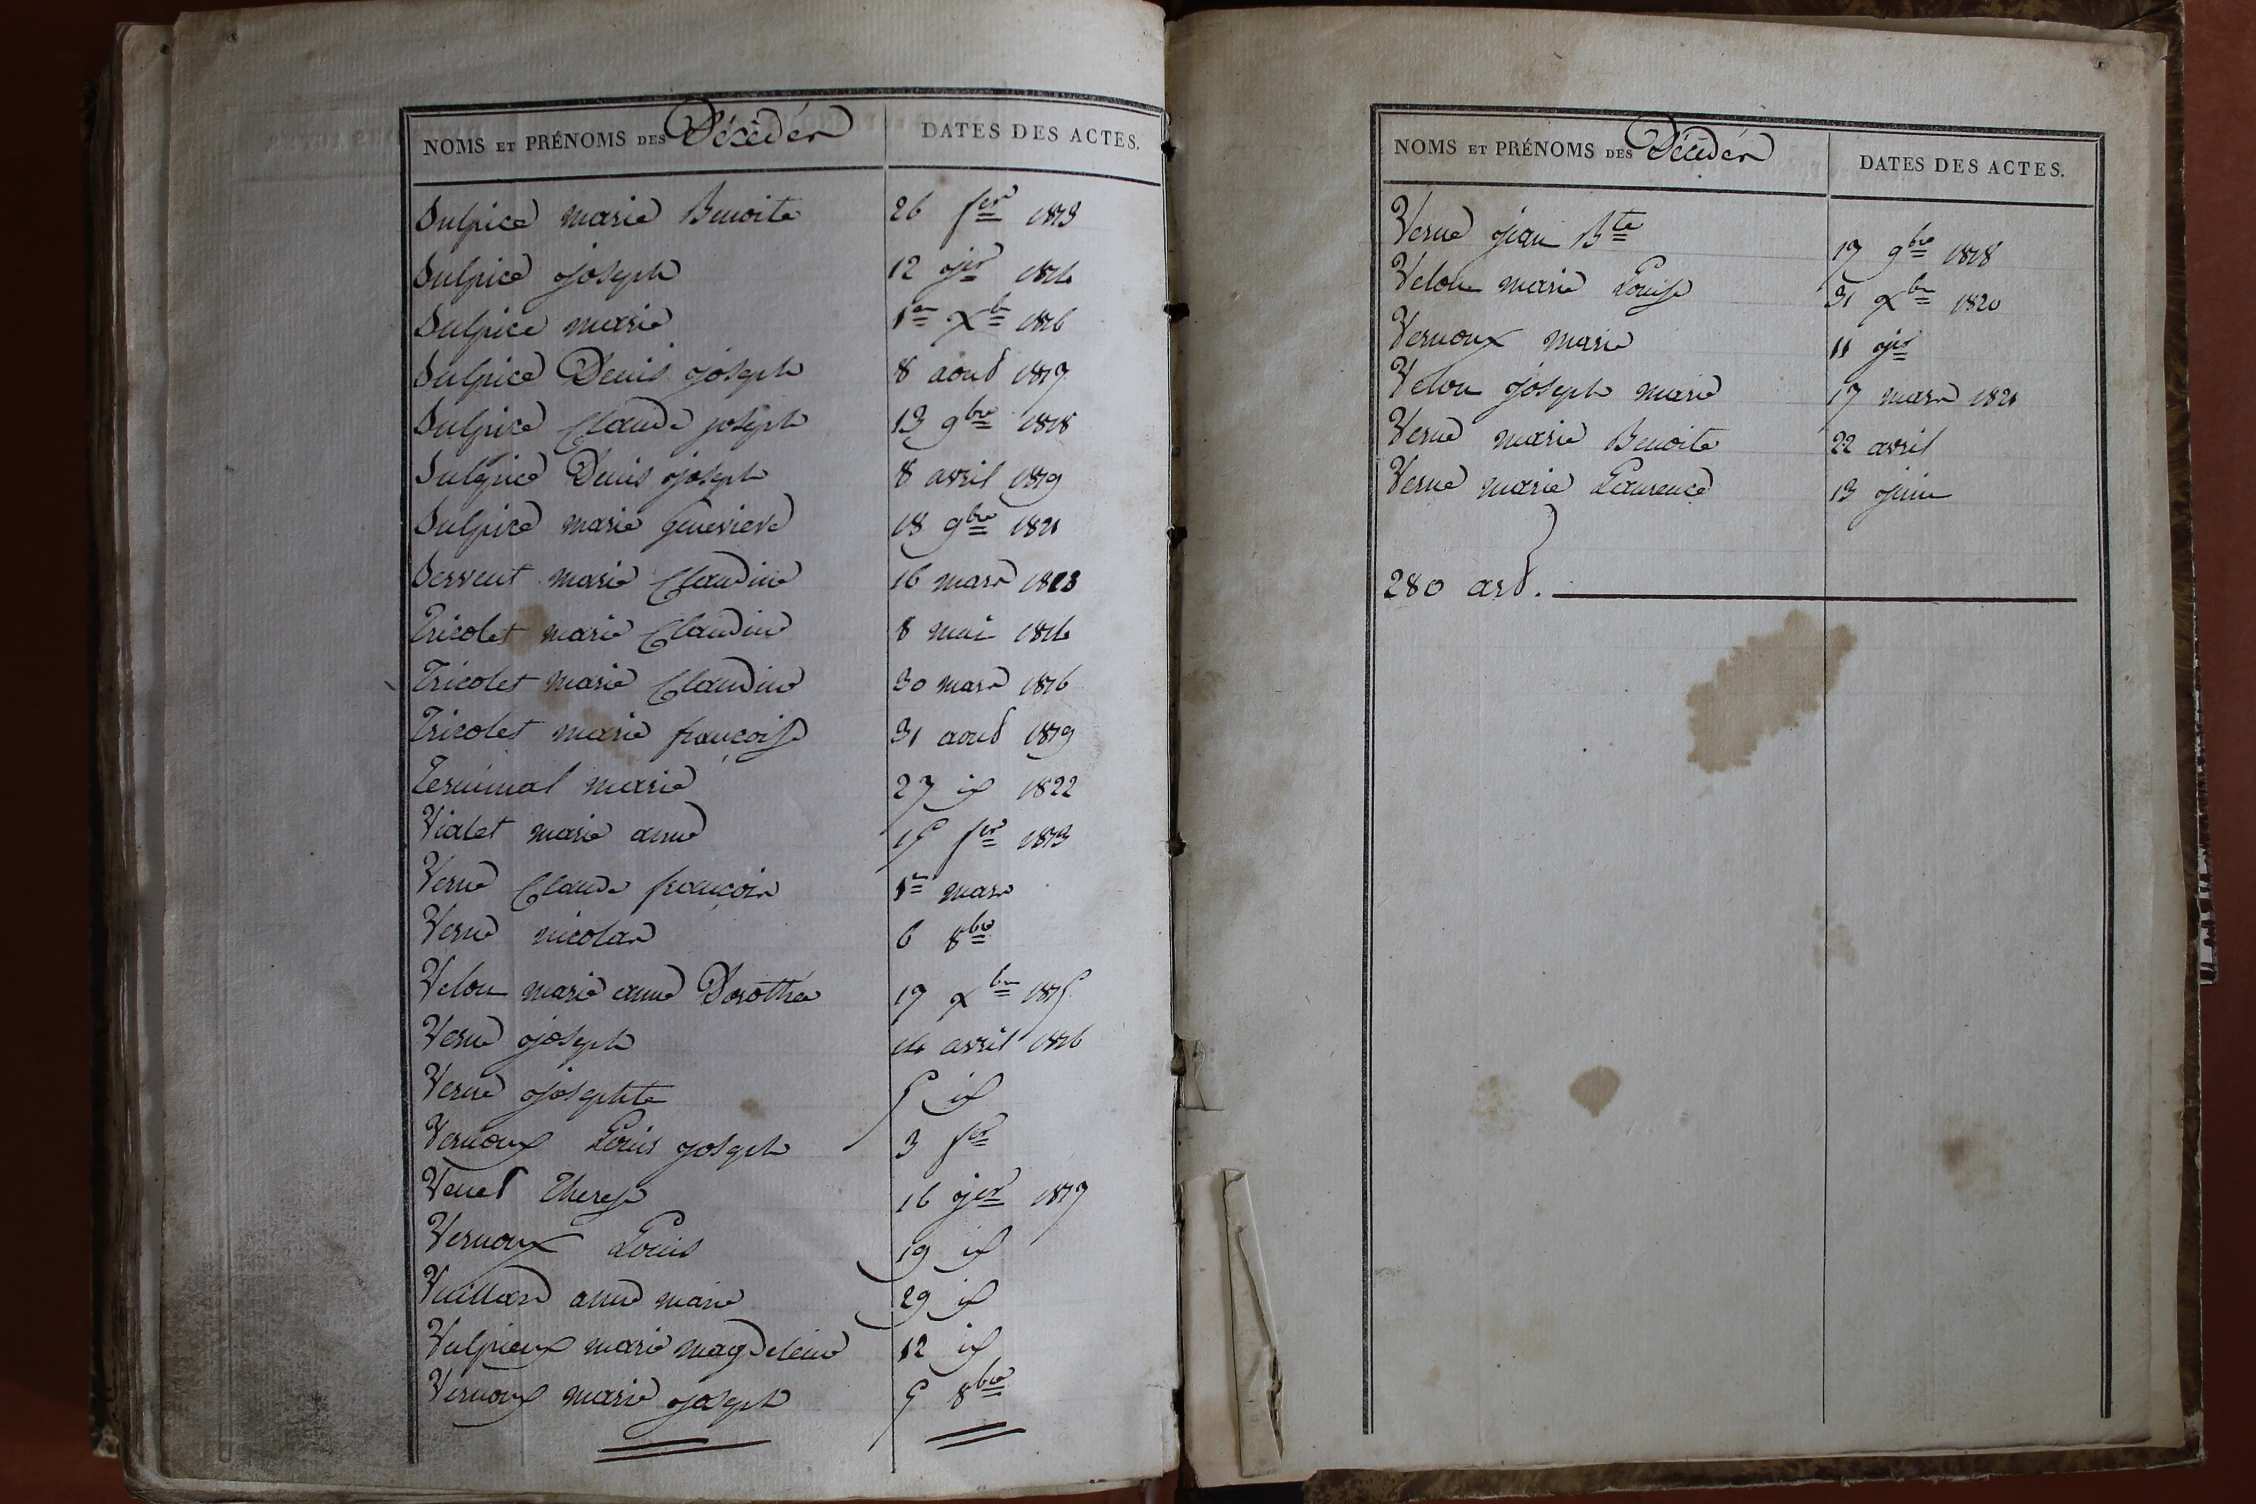 NOMS ET PRÉNOMS DES Décédés DATES DES ACTES.
Sulpice marie Benoite 26 fer 1813
Sulpice joseph 12 jer 1814
Sulpice marie 1er Xbre 1816
Sulpice Denis joseph 8 aout 1817
Sulpice Claude joseph 13 9bre 1818
Sulpice Denis joseph 8 avril 1819
Sulpice marie genevieve 18 9bre 1821
Servent marie Claudine 16 mars 1813
Tricolet marie Claudine 8 mai 1814
Tricolet marie Claudine 30 mars 1816
Tricolet marie françoise 31 aout 1819
Terminal marie 27 id 1822
Vialet marie anne 15 fer 1813
Verne Claude françois 1er mars
Verne nicolas 6 8bre
Velon marie anne Dorothée 17 Xbre 1815
Verne joseph 14 avril 1816
Verne josephte 5 id
Vernoux Louis joseph 3 fer
Venet Therese 16 jer 1817
Vernoux Louis 19 id
Vuillard anne marie 29 id
Vulpieux marie magdeleine 12 id
Vernoux marie joseph 5 8bre
NOMS ET PRÉNOMS DES Décédés DATES DES ACTES.
Verne jean Bte 17 9bre 1818
Velon marie Louise 31 Xbre 1820
Vernoux marie 11 jer
Velon joseph marie 17 mars 1821
Verne marie Benoite 22 avril
Verne marie Laurence 13 juin
280 art.